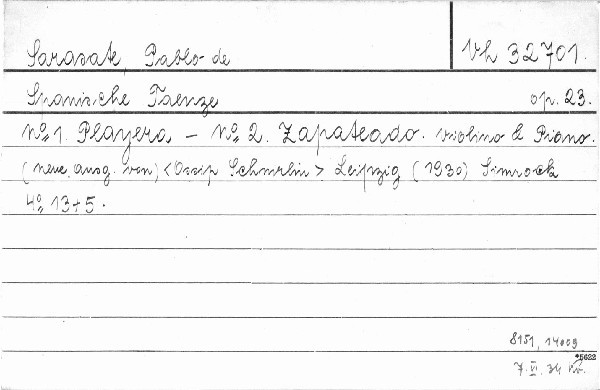 Sarasate, Pablo de
Vh 32701.
Spanische Taenze op. 23.
No 1. Playera – No 2. Zapateado. Violino & Piano.
(neue, ausg. von) <Ossip Schnirlin> Leipzig (1930) Simrock
4o 13+5.
8151, 14009
*5622
7. VI. 34